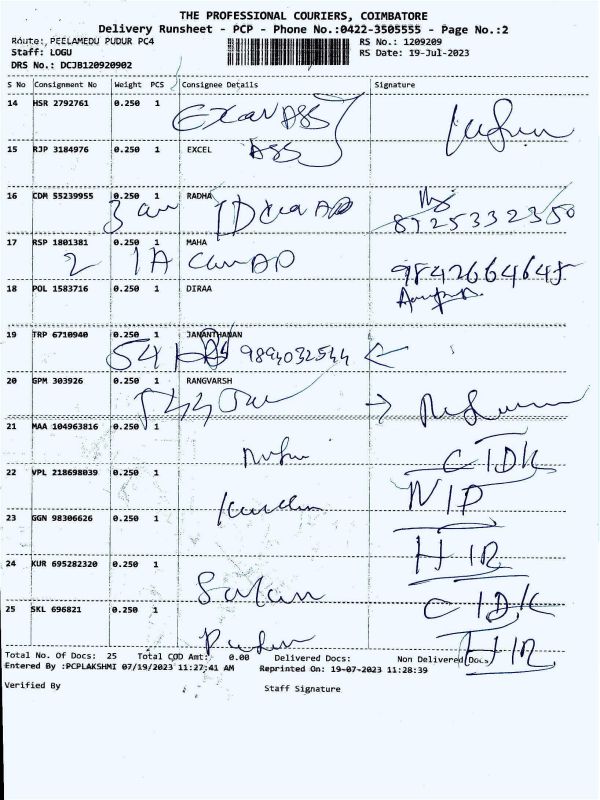 THE PROFESSIONAL COURIERS, COIMBATORE
Delivery Runsheet - PCP - Phone No.:0422-3505555 - Page No.:2
Route: PEELAMEDU PUDUR PC4
RS No.: 1209209
Staff: LOGU
RS Date: 19-Jul-2023
DRS No.: DCJB120920902
S No Consignment No Weight PCS Consignee Details Signature
14 HSR 2792761 0.250 1
15 RJP 3184976 0.250 1 EXCEL
16 CDM 55239955 0.250 1 RADHA
8725332350
17 RSP 1801381 0.250 1 MAHA
2 1A
9842664645
18 POL 1583716 0.250 1 DIRAA
19 TRP 6710940 0.250 1 JANANTHANAN
54 9894032544
20 GPM 303926 0.250 1 RANGVARSH
21 MAA 104963816 0.250 1
CIDK
22 VPL 218698039 0.250 1
NIP
23 GGN 98306626 0.250 1
HIR
24 KUR 695282320 0.250 1
CIDK
25 SKL 696821 0.250 1
HIR
Total No. Of Docs: 25 Total COD Amt: 0.00 Delivered Docs: Non Delivered Docs
Entered By :PCPLAKSHMI 07/19/2023 11:27:41 AM Reprinted On: 19-07-2023 11:28:39
Verified By Staff Signature